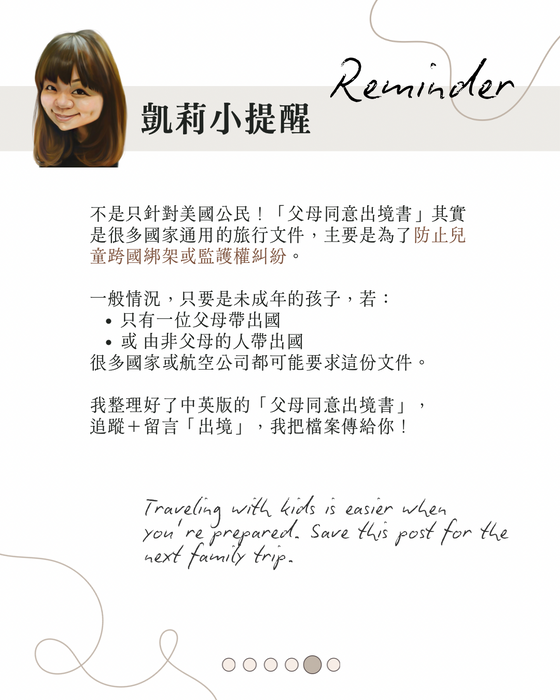 Reminder
凱莉小提醒
不是只針對美國公民！「父母同意出境書」其實
是很多國家通用的旅行文件，主要是為了防止兒
童跨國綁架或監護權糾紛。
一般情況，只要是未成年的孩子，若：
• 只有一位父母帶出國
• 或 由非父母的人帶出國
很多國家或航空公司都可能要求這份文件。
我整理好了中英版的「父母同意出境書」，
追蹤＋留言「出境」，我把檔案傳給你！
Traveling with kids is easier when
you're prepared. Save this post for the
next family trip.